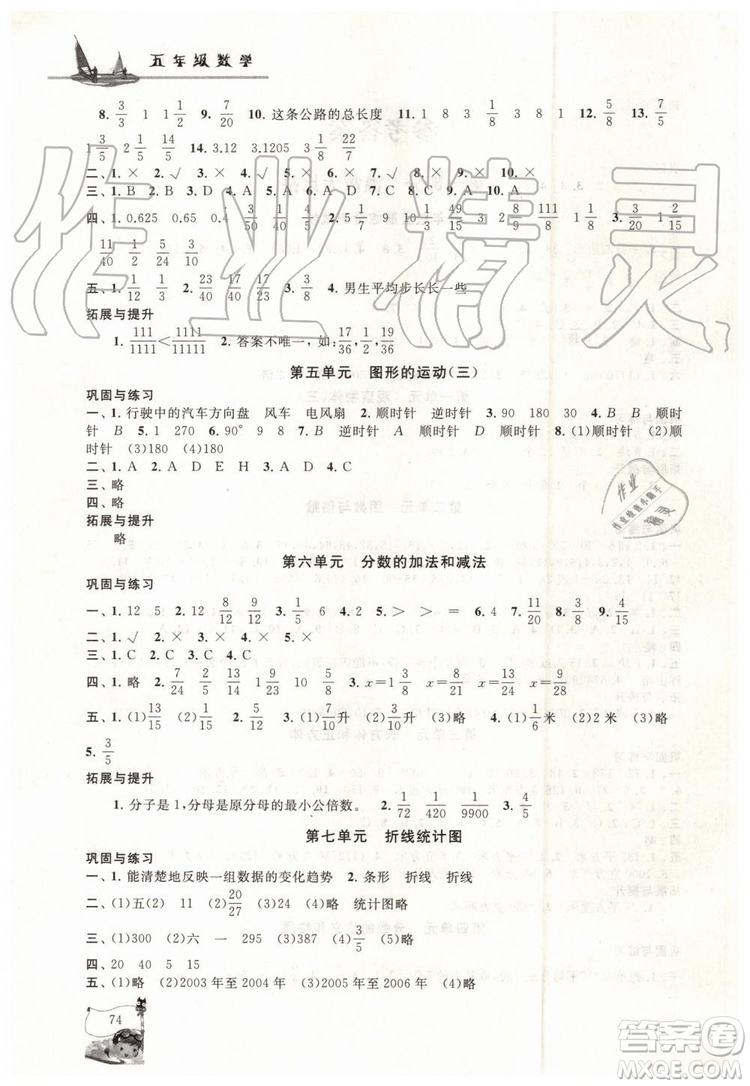 五年级数学
8. 3/3 1 1 1/2 9. 7/20 10. 这条公路的总长度 11. 1 8 3 1/8 3 8 1 12. 5/12 13. 7/5
1 3/4 14. 3.12 3.1205 3.125
二、1. × 2. √ 3. × 4. × 5. × 6. × 7. × 8. √ 9. × 10. ×
三、1. B 2. D 3. C 4. C 5. A 6. A D 7. C 8. A 9. A 10. D
四、1. 0.625 0.65 0.4 3/4 1/40 9/50 2. 5 7 9/10 1 10/13 49/15 3 2 111/8 1 1/8 3. 9/20 1 3/4
11/40 1/5 2/3 7/24
五、1. 1/12 2. 1/3 3. 23/40 31/40 4. 男生平均步长长一些
拓展与提升
1. 1111/11111<11111/111111 2. 答案不唯一,如: 17/36, 1/2, 19/36
第五单元 图形的运动(三)
巩固与练习
一、1. 行驶中的汽车方向盘 风车 电风扇 2. 顺时针 逆时针 3. 90 180 30 4. B B 顺时
针 B D 5. 1 270 6. 90° 9 8 7. B 逆时针 A 顺时针 B 顺时针 8. (1)顺时针 (2)
顺时针 (3)180 (4)180
二、1. A 2. A D E H 3. D 4. A
三、略
四、略
拓展与提升
略
第六单元 分数的加法和减法
巩固与练习
一、1. 12 15 2. 12 8/12 9/12 1/12 3. 6 5/6 4. 2 5. > > = 6. 4 7. 9/8 8. 4/15
二、1. √ 2. × 3. × 4. × 5. ×
三、1. C 2. C 3. C
四、1. 略 2. 7/24 2/15 5/7 1 9/23 10 5/8 3. x=1 3/8 x=1/4 x=3/20
五、1. (1)13/15 (2)2/15 2. 5/12 3. (1)7/10升 (2)3/10升 (3)略 4. (1)1/6米 (2)2米 (3)略
5. 3/5
拓展与提升
1. 分子是1,分母是原分母的最小公倍数。 2. 1/72 1/420 1/9900 3. 4/5
第七单元 折线统计图
巩固与练习
一、1. 能清楚地反映一组数据的变化趋势 2. 条形 折线 折线
二、(1)五(2) 11 (2)20/27 (3)5 (4)略 统计图略
三、(1)略 (2)六 一 295 (3)387 (4)3/5 (5)略
四、20 40 5 15
五、(1)略 (2)2003 年至 2004 年 (3)2005 年至 2006 年 (4)略
74
作业精灵
作业
作业检查小助手
精灵
答案圈
MXQE.COM